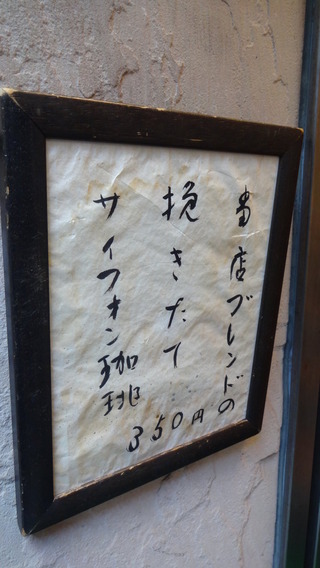 当店ブレンドの
挽きたて
サイフオン珈琲
350円